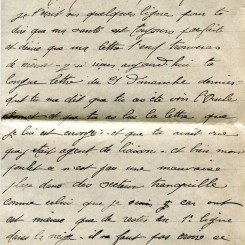 je t'écris ces quelques lignes pour te
dire que ma santé est toujours parfaite
et désire que ma lettre t'en trouveras
de même - j'ai reçu aujourd'hui ta
longue lettre du 21 Dimanche dernier
que tu me dit que tu as été voir l'Oncle
et que tu as lu la lettre que
je lui est envoyé - et que tu avait crue
que j'était agent de liaison - et bien mon
poulet ce n'est pas une mauvaise
place dans des secteur tranquille
comme celui que je suis, car ont
est mieux que de rester en 1e ligne
dans la neige - il ne faut pas croire